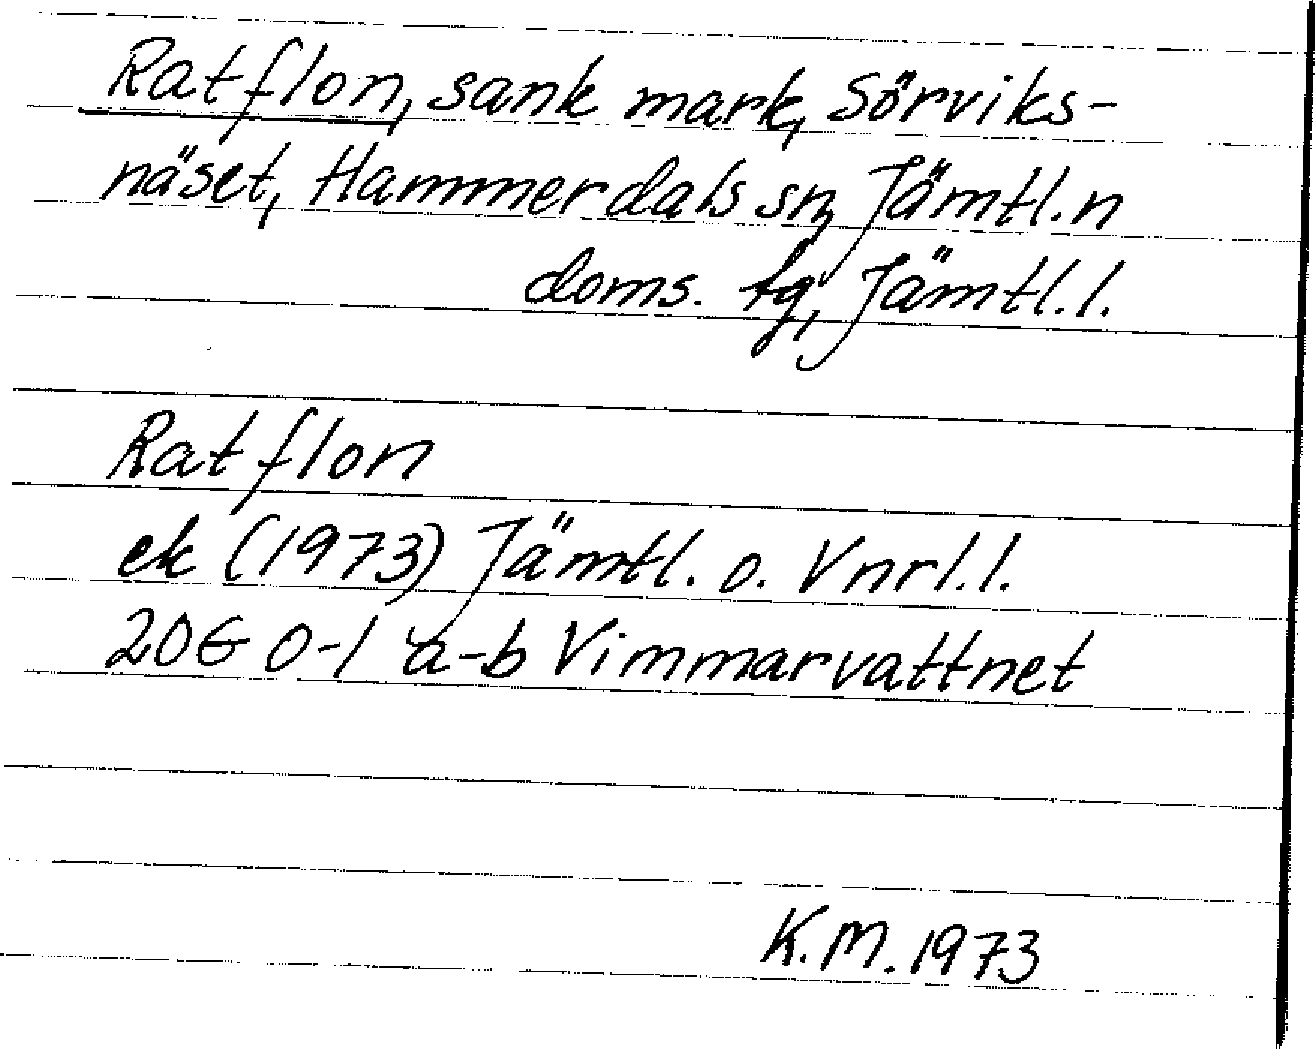 Ratflon, sank mark, Sörviks-
näset, Hammerdals sn, Jämtl.n
doms. tg, Jämtl.l.
Ratflon
ek (1973) Jämtl. o. Vnrl.l.
20G 0-1 a-b Vimmarvattnet
K.M. 1973